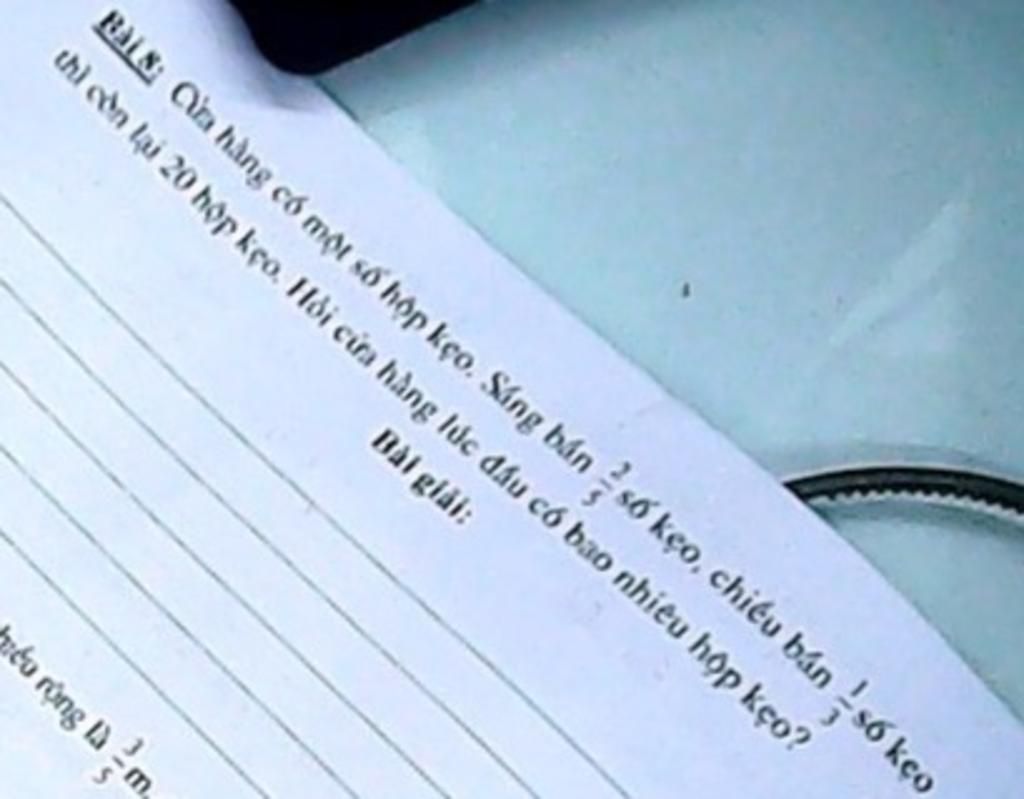 Bài 8: Cửa hàng có một số hộp kẹo. Sáng bán 2/5 số kẹo, chiều bán 1/3 số kẹo
thì còn lại 20 hộp kẹo. Hỏi cửa hàng lúc đầu có bao nhiêu hộp kẹo?
Bài giải:
rộng là 3/5 m,